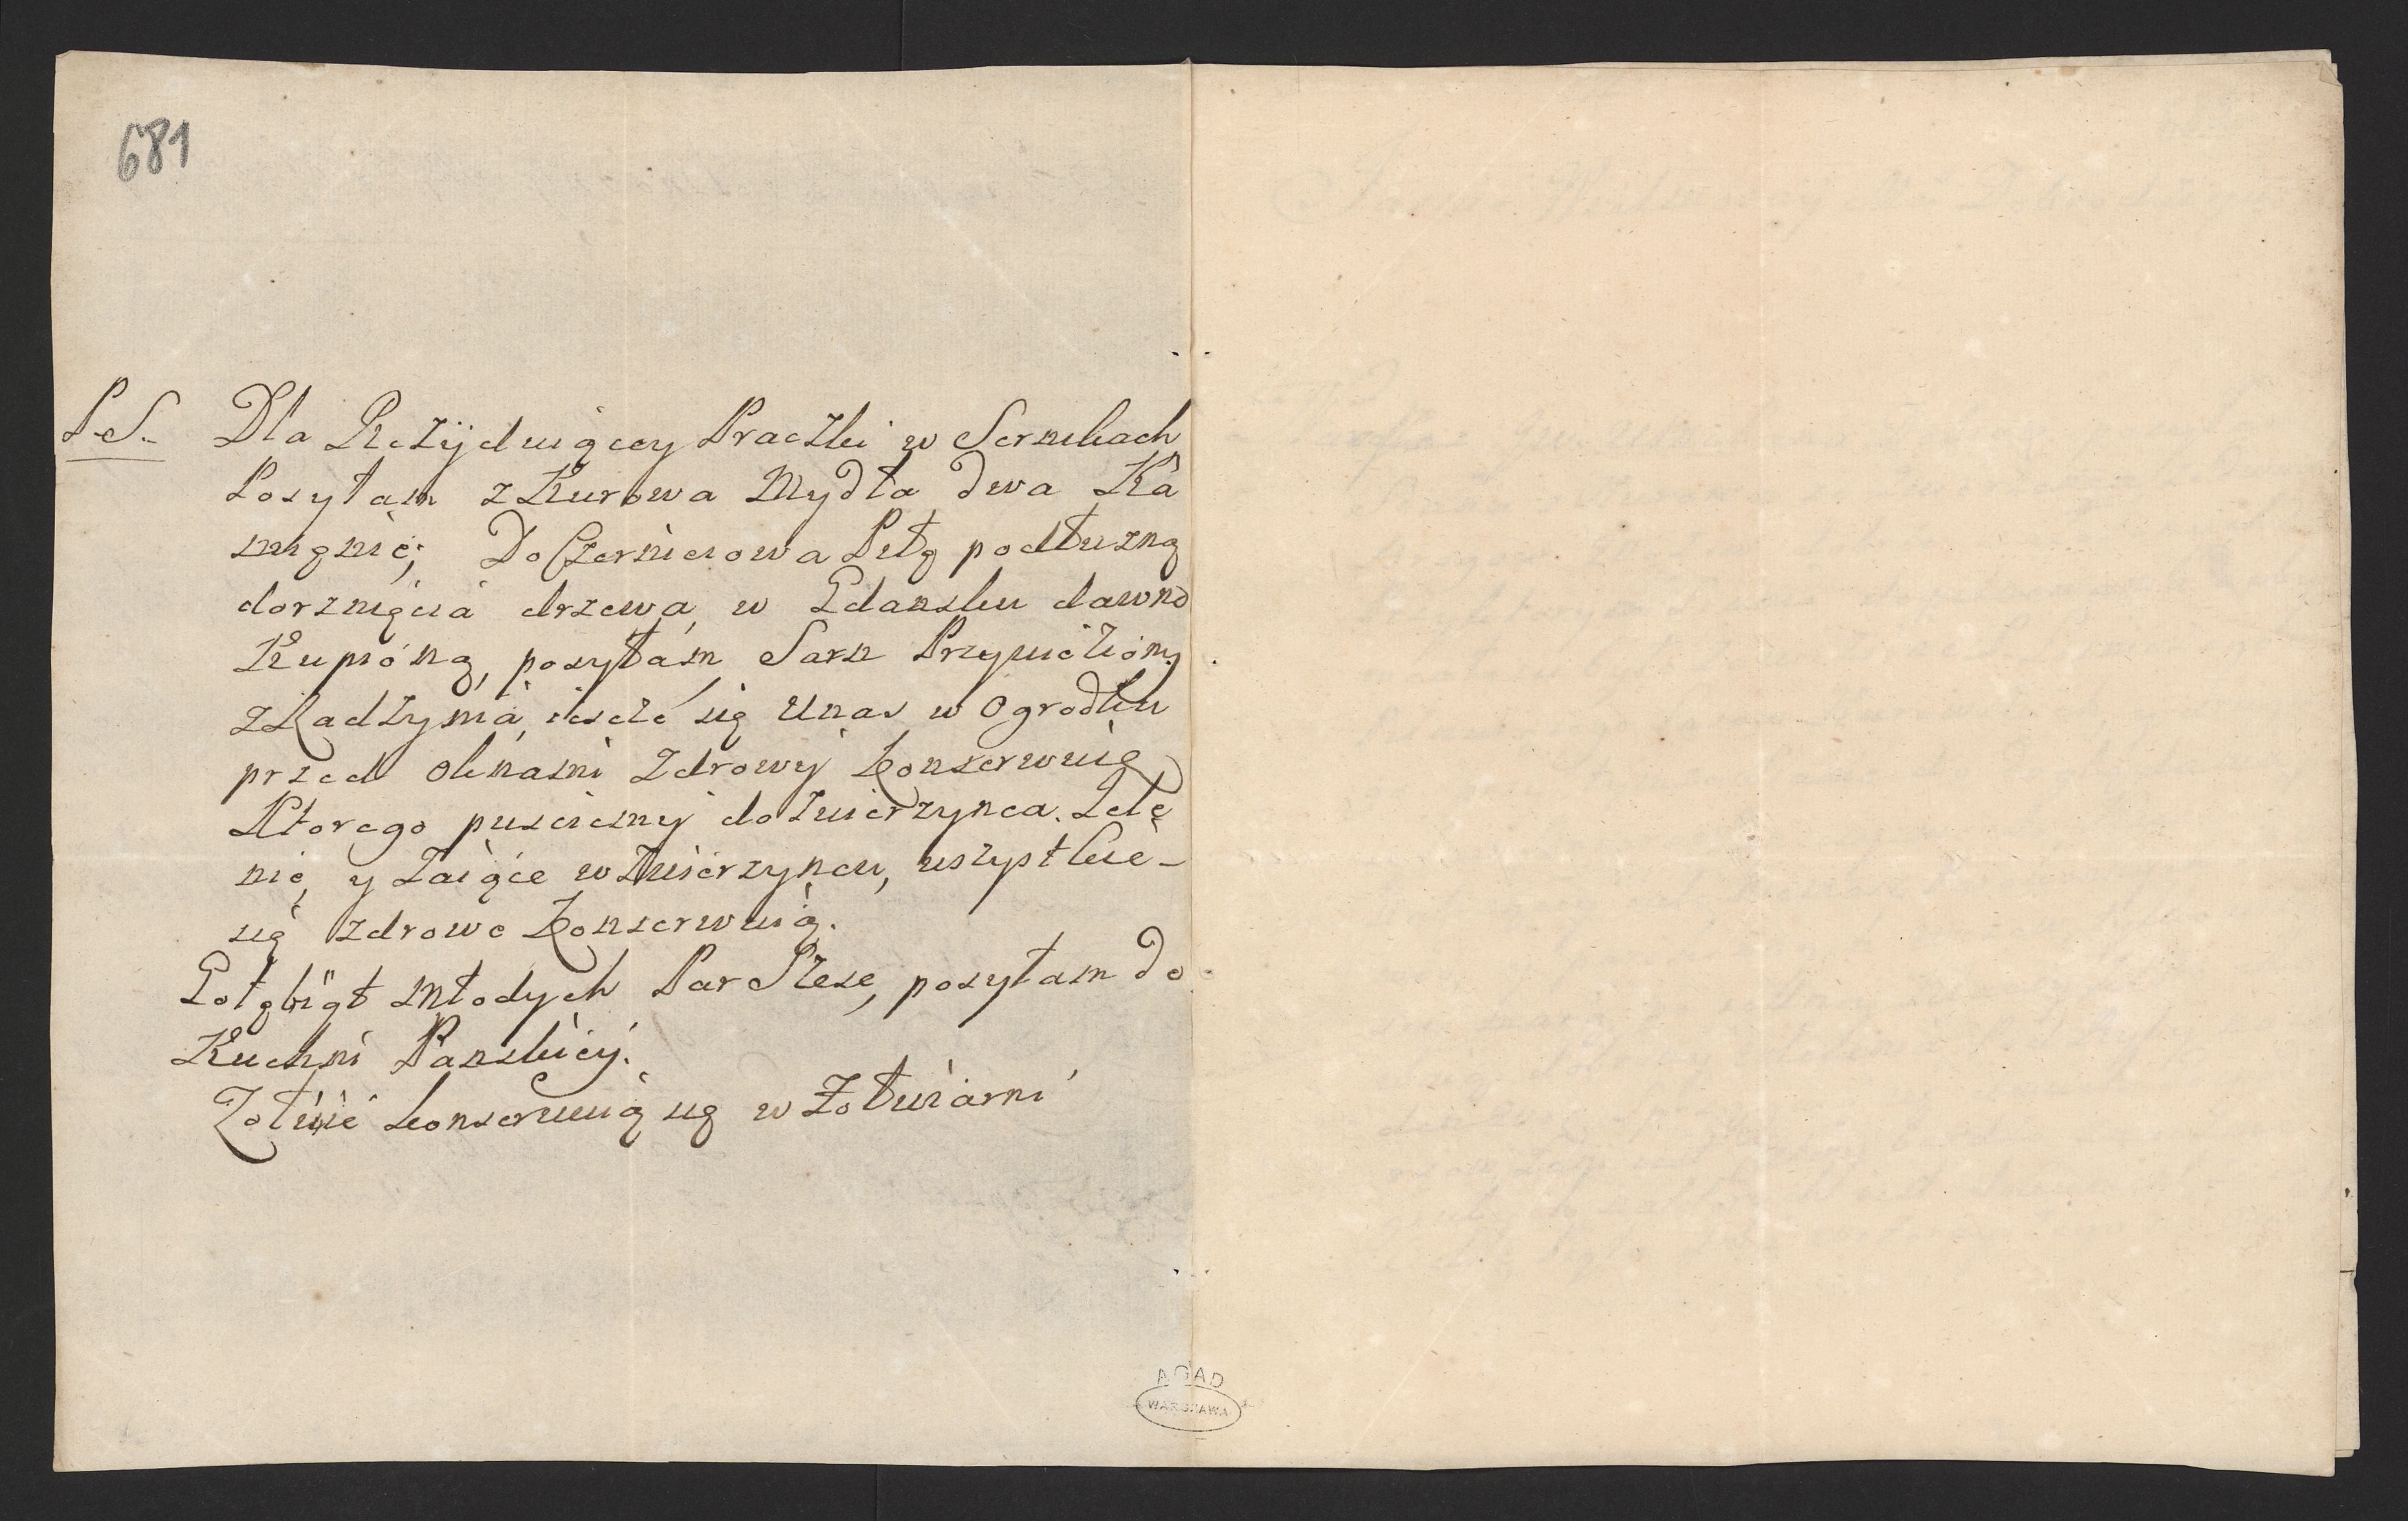 681
P.S. Dla Rezÿduiącey Praczki w Sernikach
Posyłam z Kurowa Mydła dwa Ka
mięnie; Do Czerniciowa Piłę podłużną
dorznięcia drzewa, w Gdansku dawno
Kupióną, posyłám Sarn Przywieziony
z Radzynia, iescze się Unas w Ogrodku
przed oknami zdrowy konserwuie
Ktorego pusciemy do Zwierzynca. Jele
nie, y Zaiące w Zwierzyncu, wszystkie-
się zdrowe konserwuią.
Gołębiąt młodych Par Szesc, posyłam do
Kuchni Panskiey.
Zołwie konserwuią się w Zołwiarni
AGAD
WARSZAWA